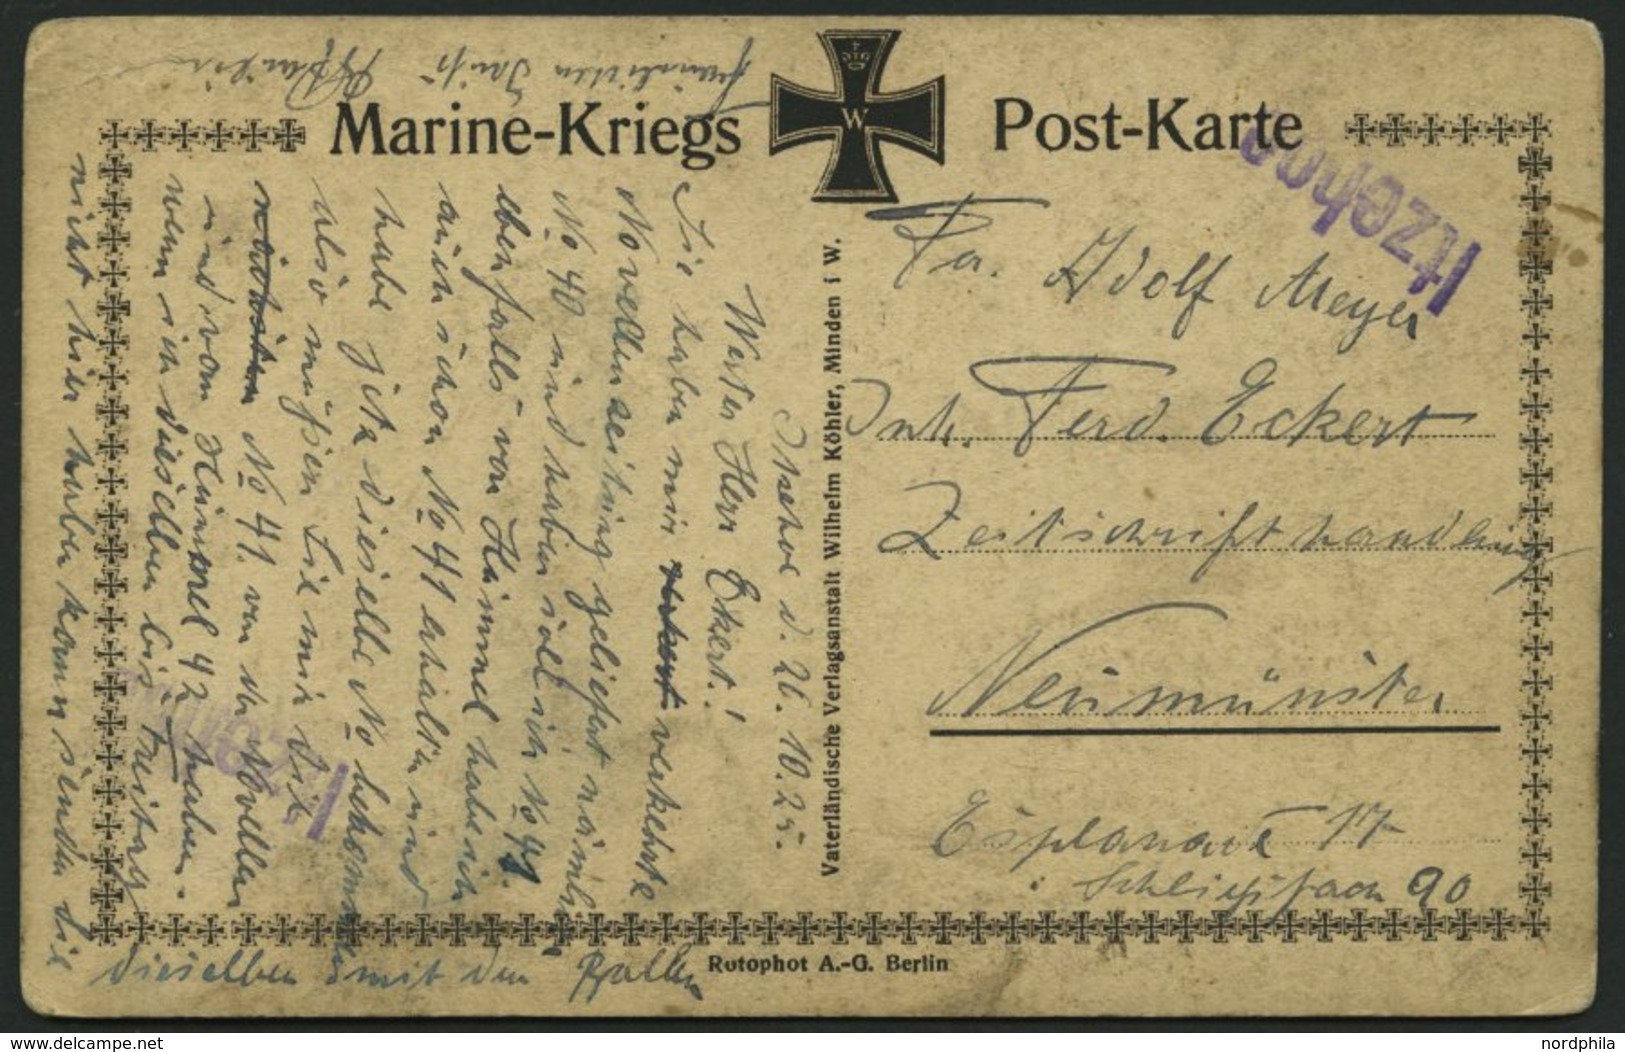 Marine-Kriegs Post-Karte
W
Itzehoe
Fa. Adolf Meyer
Inh. Ferd. Eckert
Zeitschrifthandlung
Neumünster
Esplanade 17
Schließfach 90
Vaterländische Verlagsanstalt Wilhelm Köhler, Minden i W.
Itzehoe d. 26. 10. 25.
Werter Herr Ekert!
Sie haben mir verkehrte
Novellenzeitung geliefert nämlich
No 40 und haben soll ich No 41.
ebenfalls von Himmel habe ich
auch schon No 41 erhalten und
habe jetz dieselbe No bekommen
also müssen Sie mir die
No 41. von der Novellen
und vom Himmel 42 haben.
wenn ich dieselben bis Freitag
nicht hier haben kann senden Sie
dieselben mit den Ballen
Itzehoe
Rotophot A.-G. Berlin
www.delcampe.net
nordphila